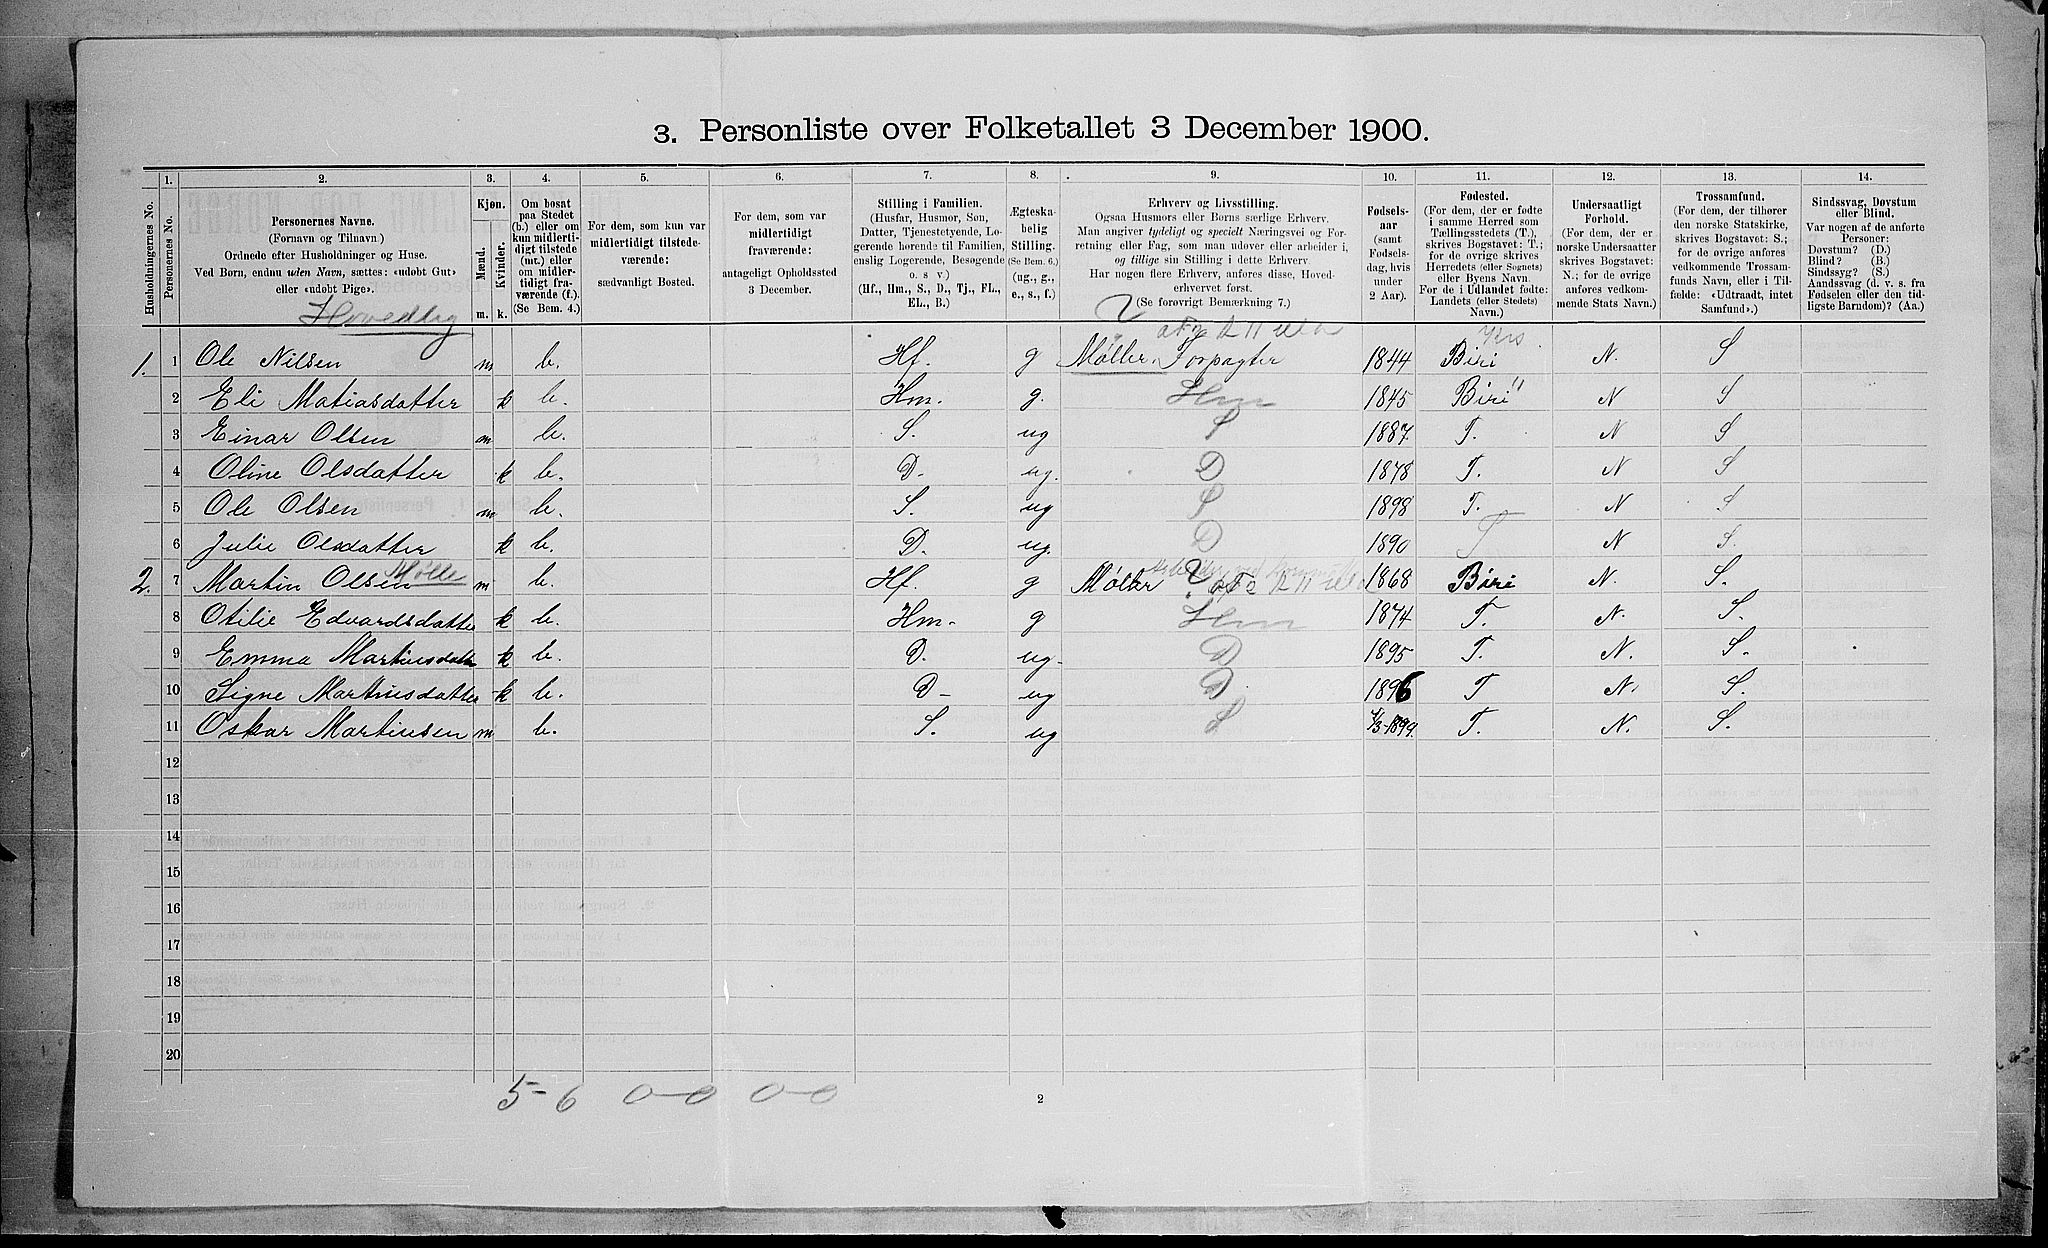 3. Personliste over Folketallet 3 December 1900.
Husholdningernes No.
1. Personernes No.
2. Personernes Navne.
(Fornavn og Tilnavn.)
Ordnede efter Husholdninger og Huse.
Ved Børn, endnu uden Navn, sættes: «udøbt Gut»
eller «udøbt Pige».
Hovedbyg
3. Kjøn.
Mænd. Kvinder.
m. k.
4. Om bosat
paa Stedet
(b.) eller om
kun midlerti-
digt tilstede
(mt.) eller
om midler-
tidigt fra-
værende (f.).
(Se Bem. 4.)
5. For dem, som kun var
midlertidigt tilstede-
værende:
sædvanligt Bosted.
6. For dem, som var
midlertidigt
fraværende:
antageligt Opholdssted
3 December.
7. Stilling i Familien.
(Husfar, Husmor, Søn,
Datter, Tjenestetyende, Lo-
gerende hørende til Familien,
enslig Logerende, Besøgende
o. s v.)
(Hf., Hm., S., D., Tj., FL.,
EL., B.)
8. Ægteska-
belig
Stilling.
(Se Bem. 6.)
(ug., g.,
e., s., f.)
9. Erhverv og Livsstilling.
Ogsaa Husmors eller Børns særlige Erhverv.
Man angiver tydeligt og specielt Næringsvei og For-
retning eller Fag, som man udøver eller arbeider i,
og tillige sin Stilling i dette Erhverv.
Har nogen flere Erhverv, anføres disse, Hoved-
erhvervet først.
(Se forøvrigt Bemærkning 7.)
10. Fødsels-
aar
(samt
Fødsels-
dag, hvis
under
2 Aar).
11. Fødested.
(For dem, der er fødte
i samme Herred som
Tællingsstedets (T.),
skrives Bogstavet: T.;
for de øvrige skrives
Herredets (eller Sognets)
eller Byens Navn
For de i Udlandet fødte:
Landets (eller Stedets)
Navn.)
12. Undersaatligt
Forhold.
(For dem, der er
norske Undersaatter
skrives Bogstavet:
N.; for de øvrige
anføres vedkom-
mende Stats Navn.)
13. Trossamfund.
(For dem, der tilhører
den norske Statskirke,
skrives Bogstavet: S.;
for de øvrige anføres
vedkommende Trossam-
funds Navn, eller i Til-
fælde: «Udtraadt, intet
Samfund».)
14. Sindssvag, Døvstum
eller Blind.
Var nogen af de anførte
Personer:
Døvstum? (D.)
Blind? (B.)
Sindssyg? (S.)
Aandssvag (d. v. s. fra
Fødselen eller den tid-
ligste Barndom)? (Aa.)
1. 1 Ole Nilsen m b. Hf. g Møller, Forpagter 1844 Biri N. S
2 Eli Matiasdatter k b. Hm. g. Hm 1845 Biri N S
3 Einar Olsen m b. S. ug S 1887 T. N S
4 Oline Olsdatter k b. D- ug. D 1878 T. N S
5 Ole Olsen m b. S. ug S 1898 T. N S
6 Julie Olsdatter k b. D. ug. D 1890 T N S.
2. 7 Martin Olsen Mølle m b. Hf. g Møller 1868 Biri N. S.
8 Otilie Edvardsdatte k b. Hm. g Hm 1874 T. N. S.
9 Emma Martinsdatte k b. D. ug. D 1895 T. N. S.
10 Signe Martinsdatte k b. D- ug D 1896 T N. S.
11 Oskar Martinsen m b. S. ug S 1/3-1899. T. N. S.
12
13
14
15
16
17
18
19
20
5-6 0-0 0-0
2